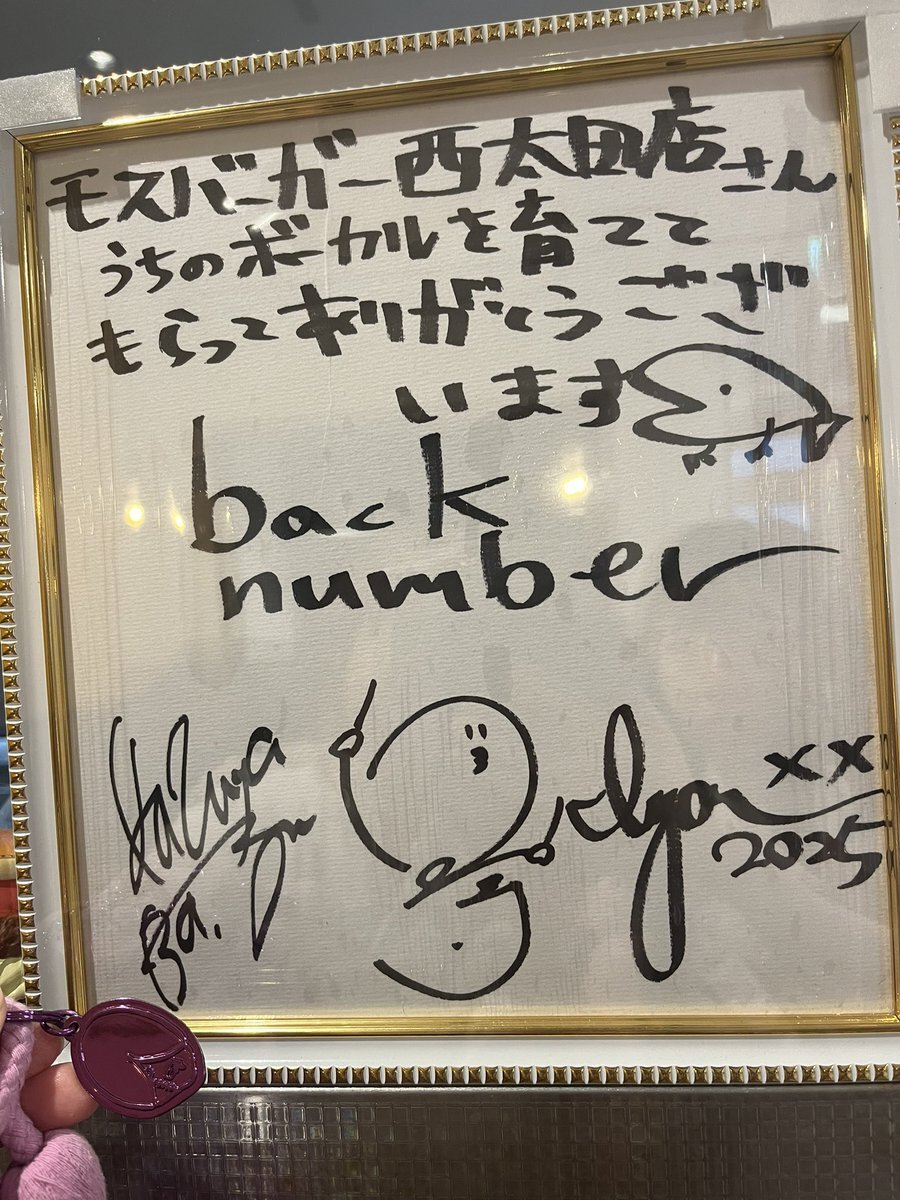 モスバーガー西太田店さん
うちのボーカルを育てて
もらってありがとうござ
います
back
number
Kazuya
Ba.
2025